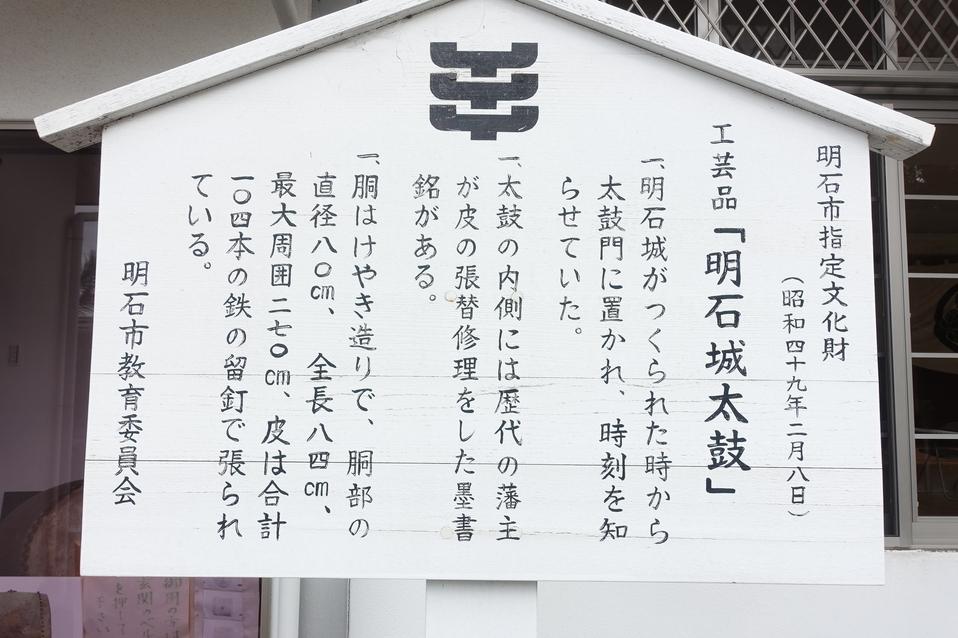 明石市指定文化財
（昭和四十九年二月八日）
工芸品「明石城太鼓」
一、明石城がつくられた時から
太鼓門に置かれ、時刻を知
らせていた。
一、太鼓の内側には歴代の藩主
が皮の張替修理をした墨書
銘がある。
一、胴はけやき造りで、胴部の
直径八〇cm、全長八四cm、
最大周囲二七〇cm、皮は合計
一〇四本の鉄の留釘で張られ
ている。
明石市教育委員会